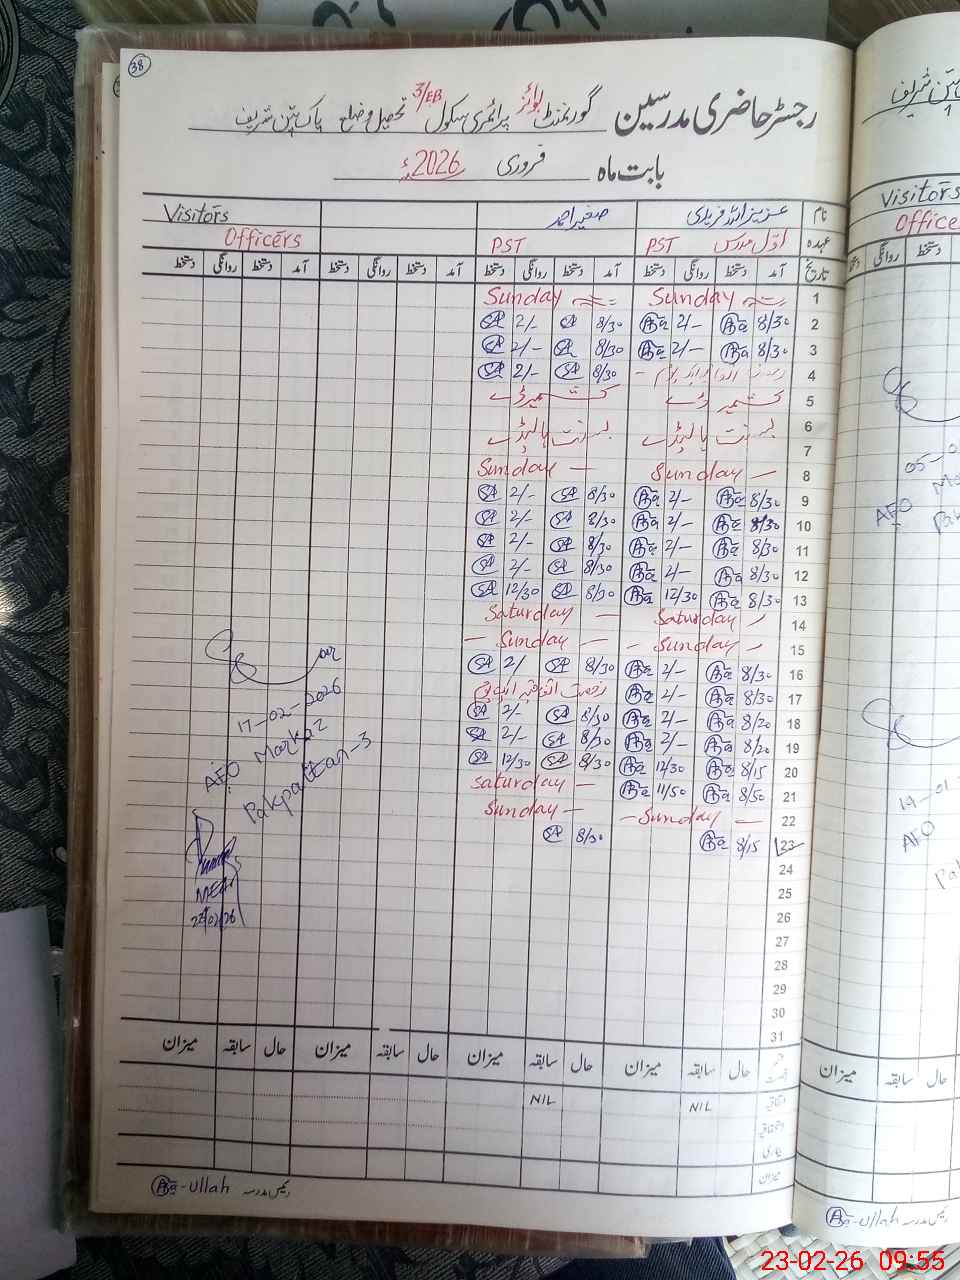 38
رجسٹر حاضری مدرسین گورنمنٹ بوائز پرائمری سکول 3/EB تحصیل و ضلع پاکپتن شریف
بابت ماہ فروری 2026ء
نام صغیر احمد Visitors
عہدہ اوّل مدرس PST PST Officers
تاریخ آمد دستخط روانگی دستخط آمد دستخط روانگی دستخط آمد دستخط روانگی دستخط آمد دستخط روانگی دستخط
1 Sunday Sunday
2 8/30 2/- 8/30 SA 2/- SA
3 8/30 2/- 8/30 SA 2/- SA
4 8/30 SA 2/- SA
5 کشمیر ڈے کشمیر ڈے
6 بسنت ہالیڈے بسنت ہالیڈے
7
8 Sunday Sunday
9 8/30 2/- 8/30 SA 2/- SA
10 8/30 2/- 8/30 SA 2/- SA
11 8/30 2/- 8/30 SA 2/- SA
12 8/30 2/- 8/30 SA 2/- SA
13 8/30 12/30 8/30 SA 12/30 SA
14 Saturday Saturday
15 Sunday Sunday
16 8/30 2/- 8/30 SA 2/ SA
17 8/30 2/-
18 8/20 2/- 8/30 SA 2/- SA
19 8/20 2/- 8/30 SA 2/- SA
20 8/15 12/30 8/30 SA 12/30 SA
21 8/50 11/50 Saturday
22 Sunday Sunday
23 8/15 8/30 SA
24
25
26
27
28
29
30
31
17-02-2026
AEO Markaz
Pakpattan-3
MEA
حال سابقہ میزان حال سابقہ میزان حال سابقہ میزان حال سابقہ میزان
اتفاقیہ NIL NIL
بیماری
میزان
-ullah رئیس مدرسہ
Visitors
Office
دستخط روانگی
05-0
AEO Ma
Pak
19-01
AEO
Pak
حال سابقہ میزان
-ullah رئیس مدرسہ
23-02-26 09:55